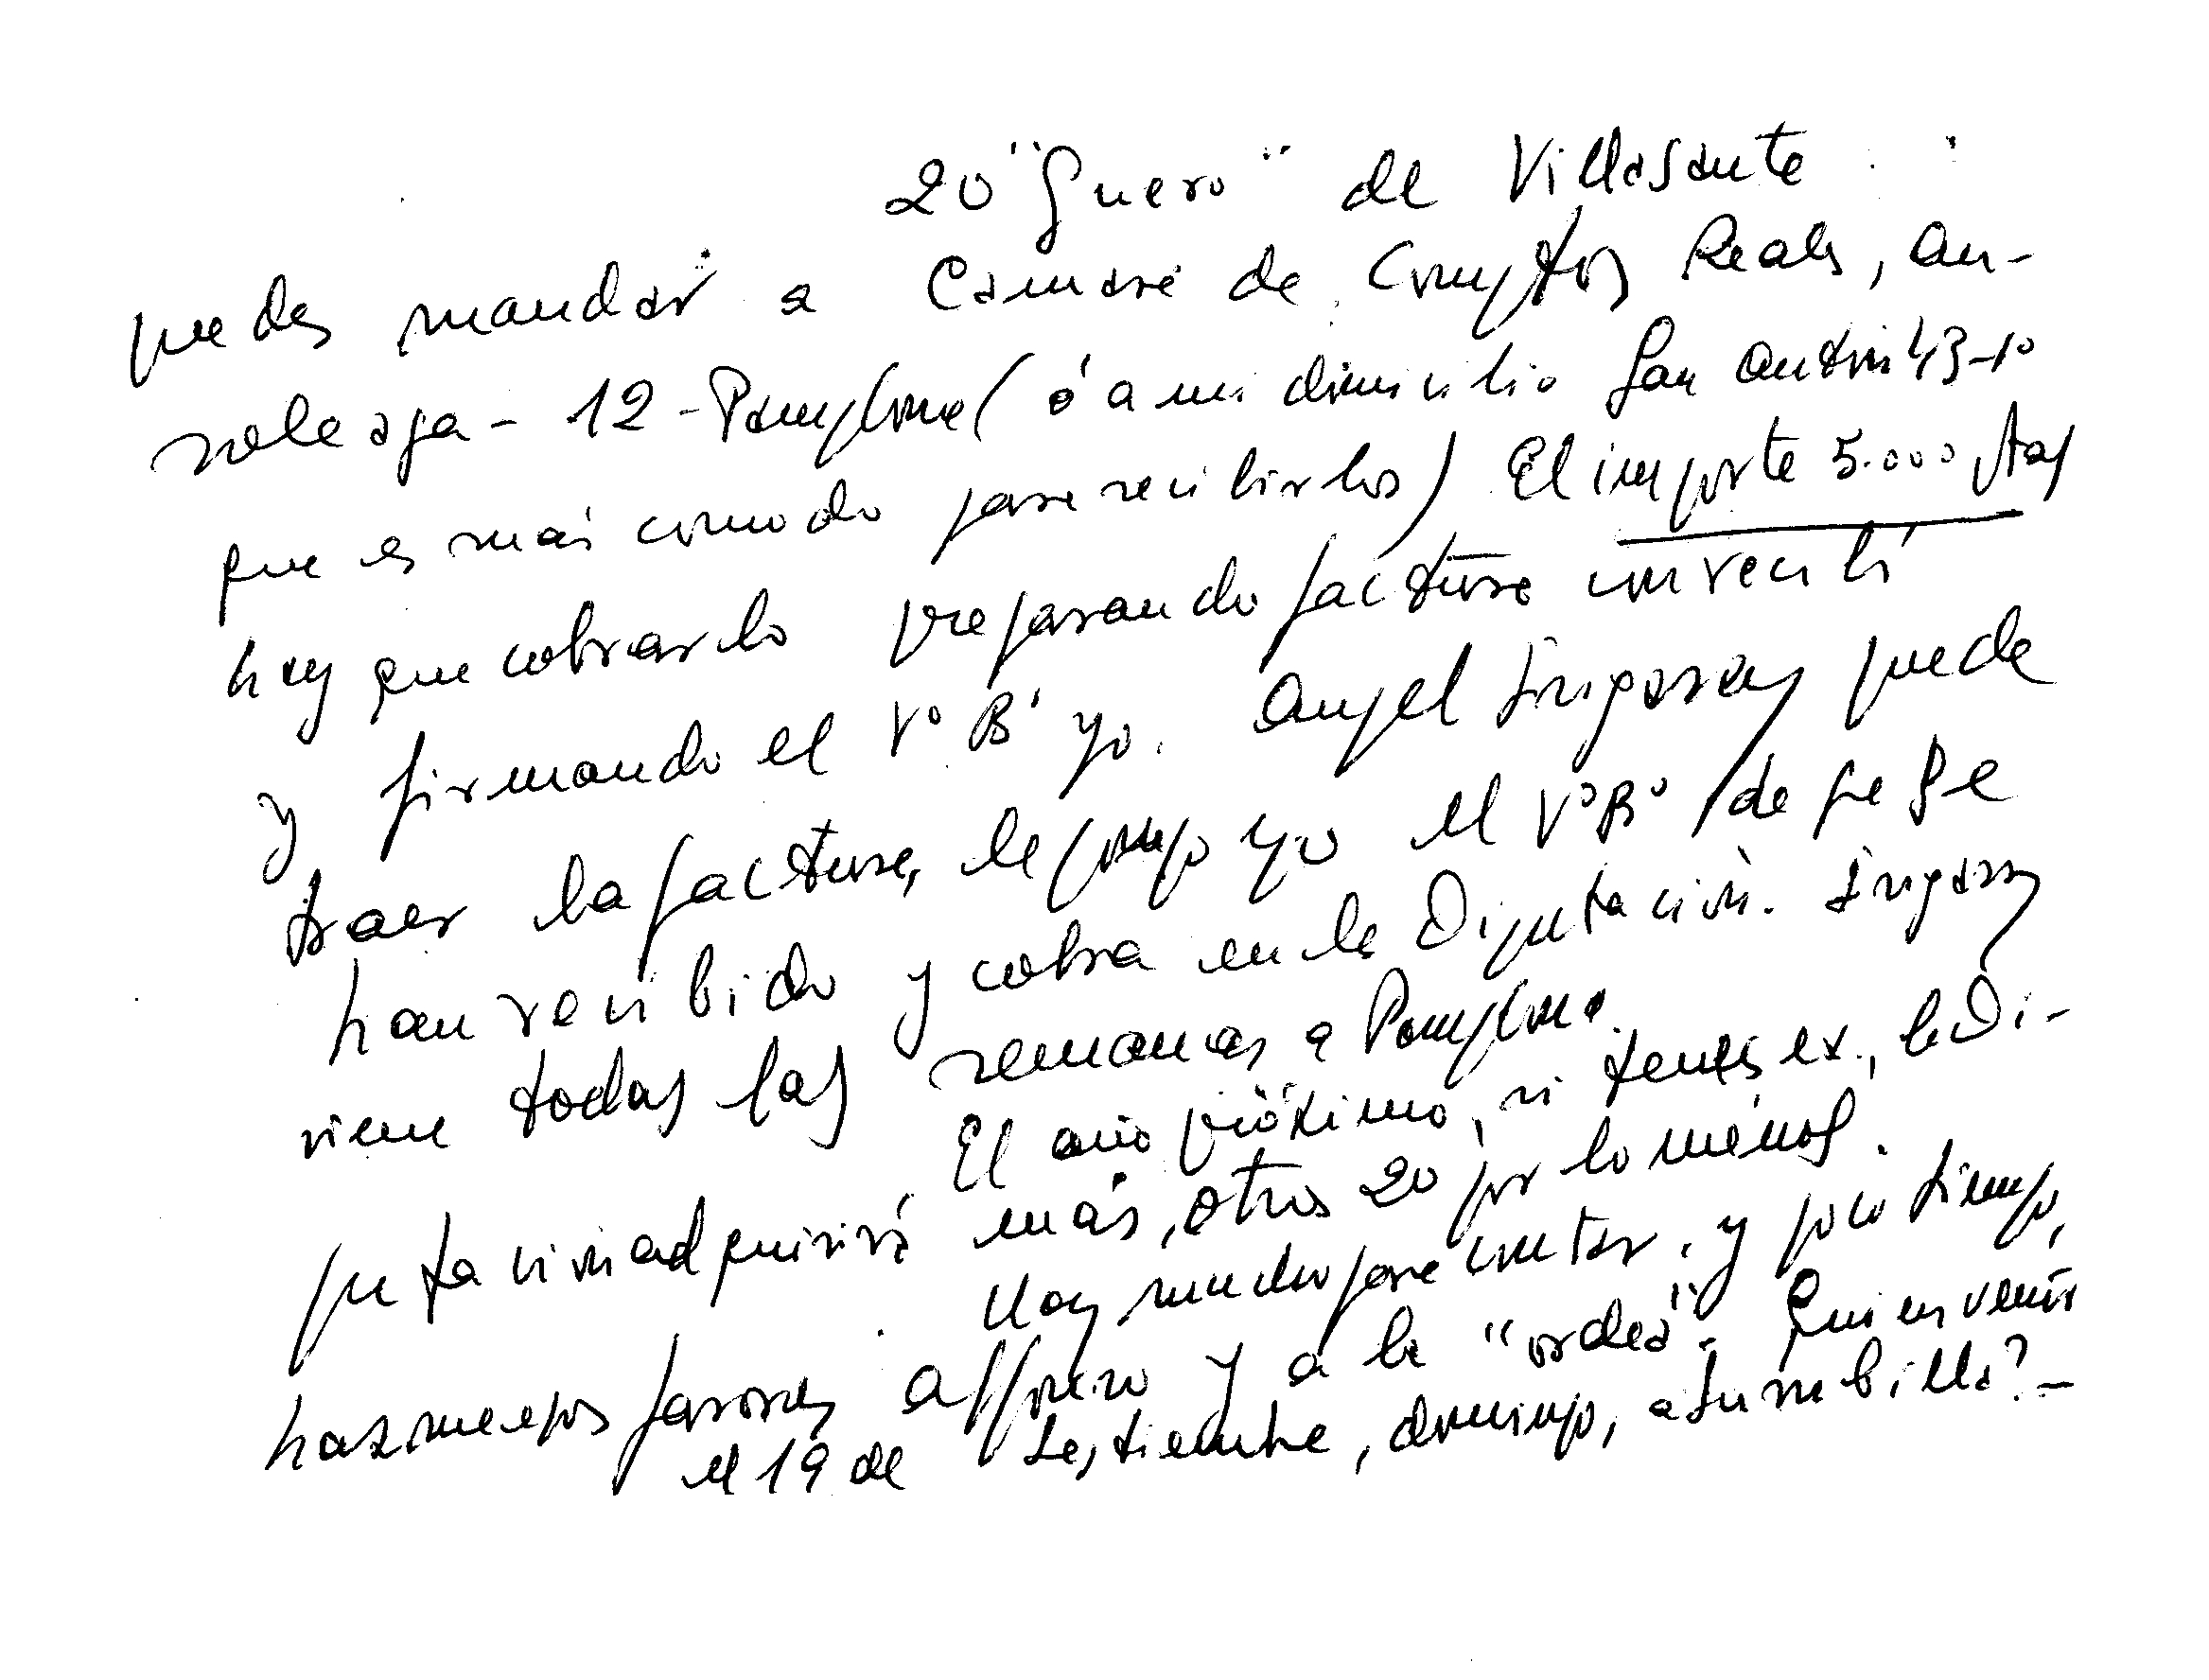 20 "Guero" de Villasante
puedes mandar a Camara de Comptos Reales, An-
soleaga - 12 - Pamplona (ó a mi domicilio San Antón 43-1º
que es más comodo para recibirlos) El importe 5.000 ptas
hay que cobrarlo preparando factura con recibí
y firmando el Vº Bº yo. Angel Irigaray puede
traer la factura, le pongo yo el VºBº de que se
han recibido y cobra en la Diputación. Irigaray
viene todas las semanas a Pamplona.
El año próximo, si tenéis ex., la Di-
putación adquirirá más, otros 20 por lo menos.
Hay mucho para contar. y poco tiempo,
hazme esos favores y a la "ordea". Quieres venir
el 19 de Septiembre, domingo, a Sunbilla? -